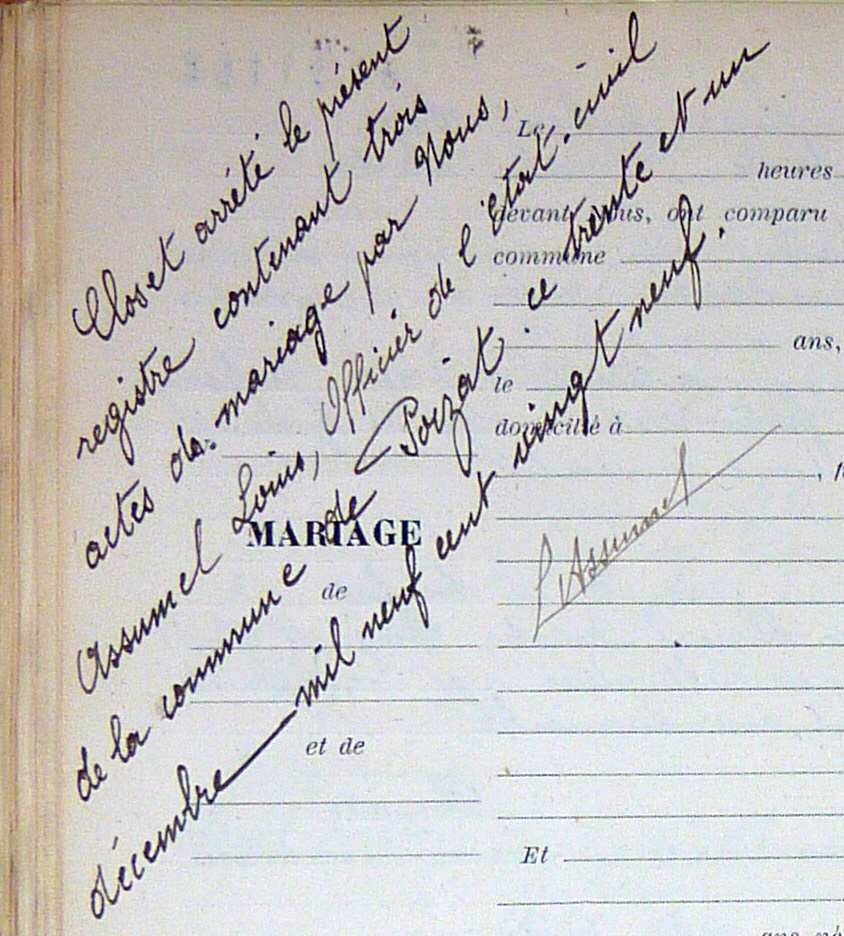 Clos et arrêté le présent
registre contenant trois
actes de mariage par Nous,
Assumel Louis, Officier de l'Etat-civil
de la commune de Poizat. ce trente et un
décembre mil neuf cent vingt neuf.
L Assumel
Le
heures
devant nous, ont comparu
commune
ans,
le
domicilié à
MARIAGE
de
et de
Et